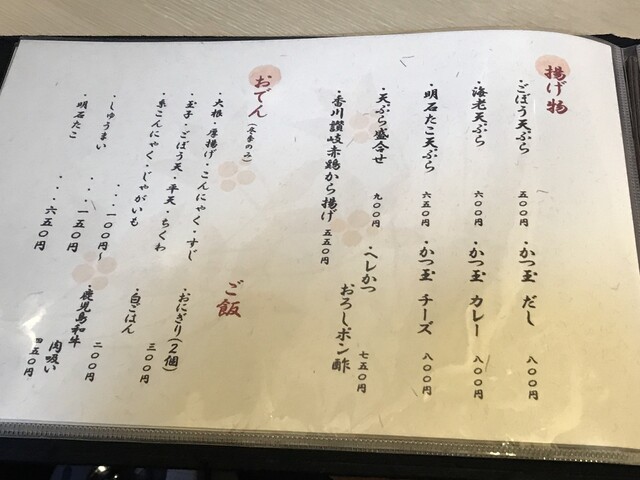 揚げ物
・ごぼう天ぷら 五〇〇円
・海老天ぷら 六〇〇円
・明石たこ天ぷら 六五〇円
・天ぷら盛合せ 九〇〇円
・香川讃岐赤鶏から揚げ 五五〇円
・かつ玉 だし 八〇〇円
・かつ玉 カレー 八〇〇円
・かつ玉 チーズ 八〇〇円
・ヘレかつ
おろしポン酢 七五〇円
おでん (冬季のみ)
・大根・厚揚げ・こんにゃく・すじ
・玉子・ごぼう天・平天・ちくわ
・糸こんにゃく・じゃがいも
・・・一〇〇円~
・しゅうまい ・・・一五〇円
・明石たこ ・・・六五〇円
ご飯
・おにぎり(2個) 三〇〇円
・白ごはん 二〇〇円
・鹿児島和牛
肉吸い 四五〇円